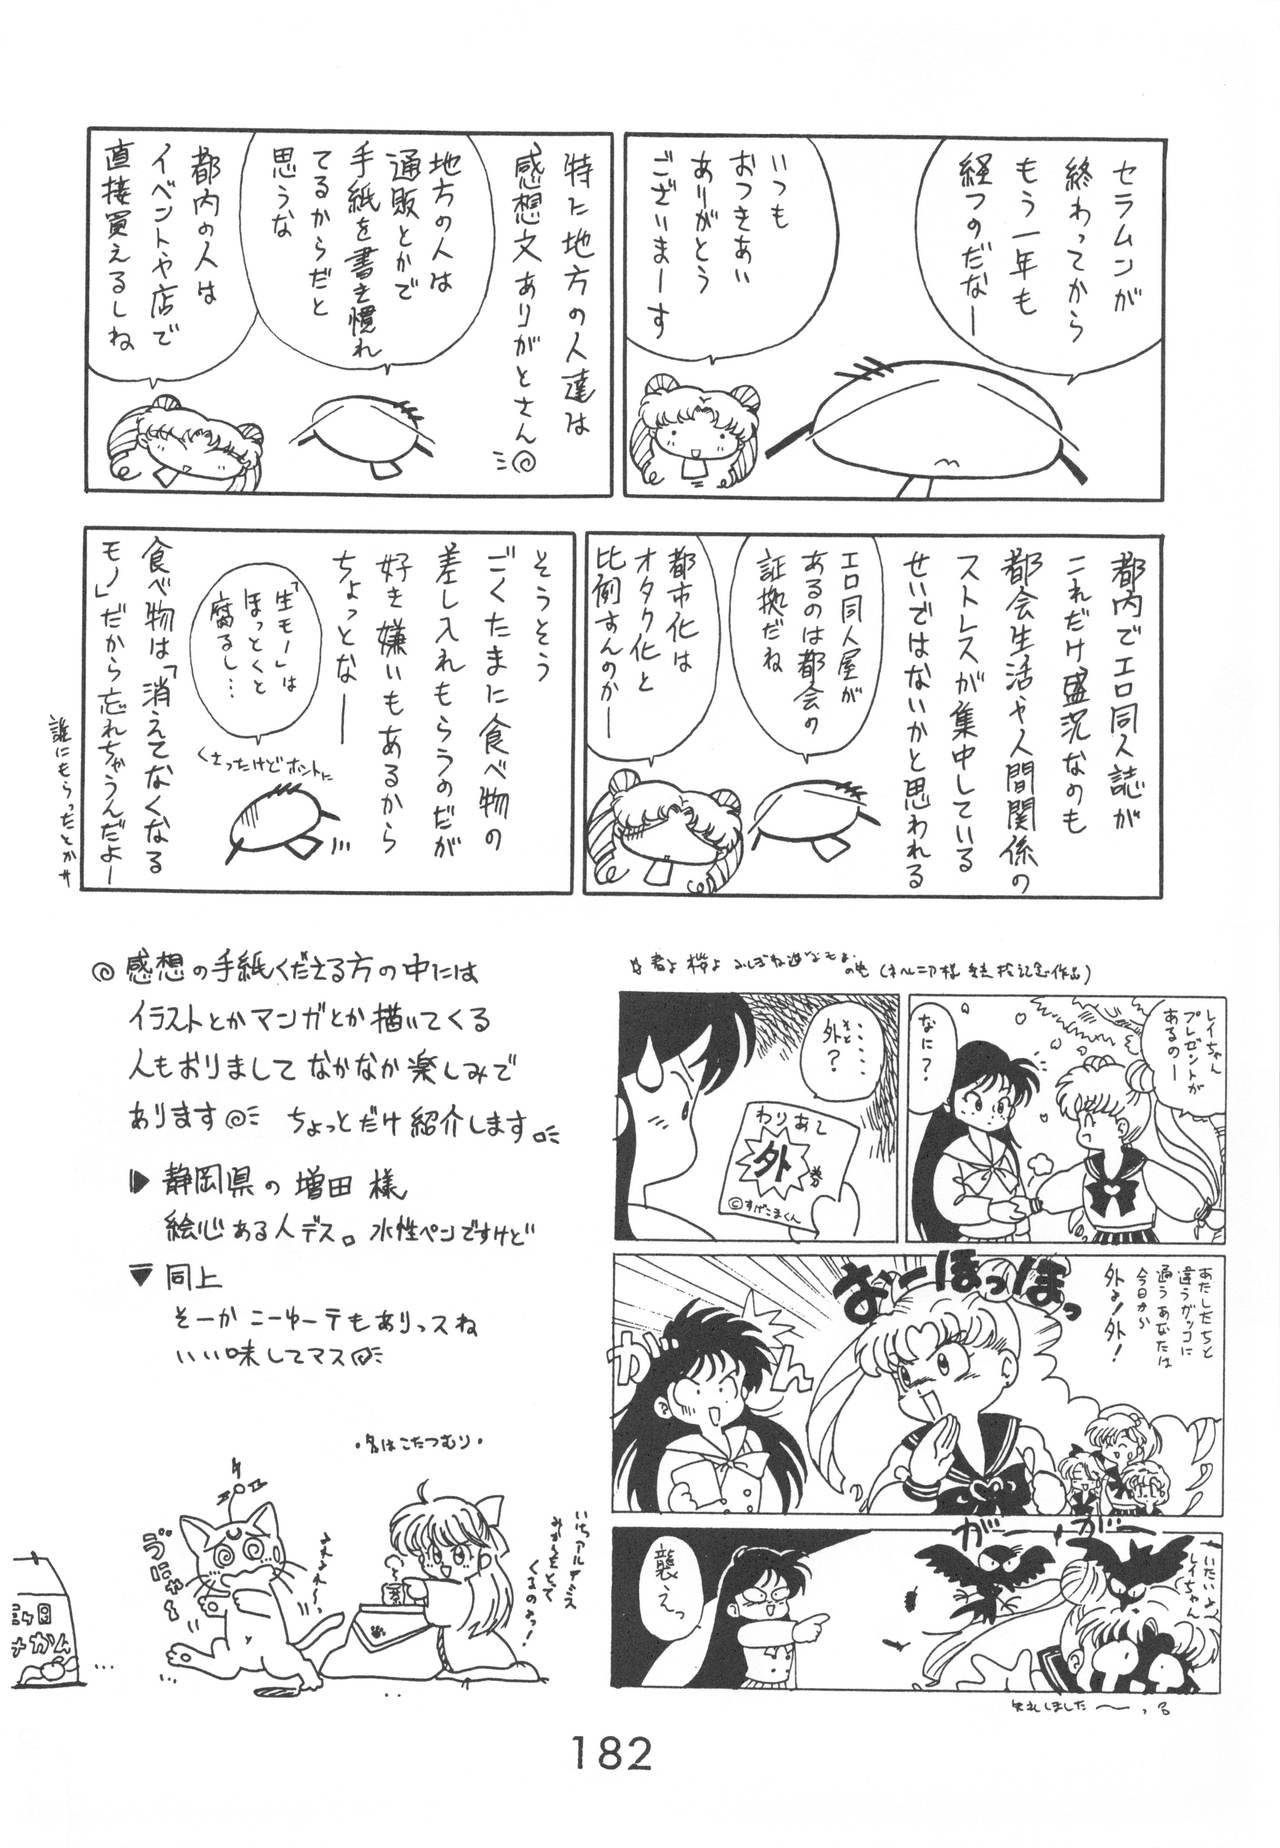 セラムンが
終わってから
もう一年も
経つのだなー
いつも
おつきあい
ありがとう
ございまーす
特に地方の人達は
感想文ありがとさん
地方の人は
通販とかで
手紙を書き慣れ
てるからだと
思うな
都内の人は
イベントや店で
直接買えるしね
都内でエロ同人誌が
これだけ盛況なのも
都会生活や人間関係の
ストレスが集中している
せいではないかと思われる
エロ同人屋が
あるのは都会の
証拠だね
都市化は
オタク化と
比例すんのかー
そうそう
ごくたまに食べ物の
差し入れもらうのだが
好き嫌いもあるから
ちょっとなー
「生モノ」は
ほっとくと
腐るし…
くさったけどホントに
食べ物は「消えてなくなる
モノ」だから忘れちゃうんだよー
誰にもらったとかサ
感想の手紙くださる方の中には
イラストとかマンガとか描いてくる
人もおりまして なかなか楽しみで
あります ちょっとだけ紹介します
▶ 静岡県の増田様
絵心ある人デス。水性ペンですけど
▼ 同上
そーか こーゆーテもありっスね
いい味してマス
レイちゃん
プレゼントが
あるのー
なに?
そ…
外と……?
わりあて
外
券
©すがこまくん
あたしたちと
違うガッコに
通うあなたは
今日から
外よ!外!
おーほっほほっ
がーん
ガーガー
いたいよぉ
レイちゃん
襲えっ
失礼しました〜
・名はこたつむり・
みかんをとって
くるのよっ!
ゴニャー
みかん
182